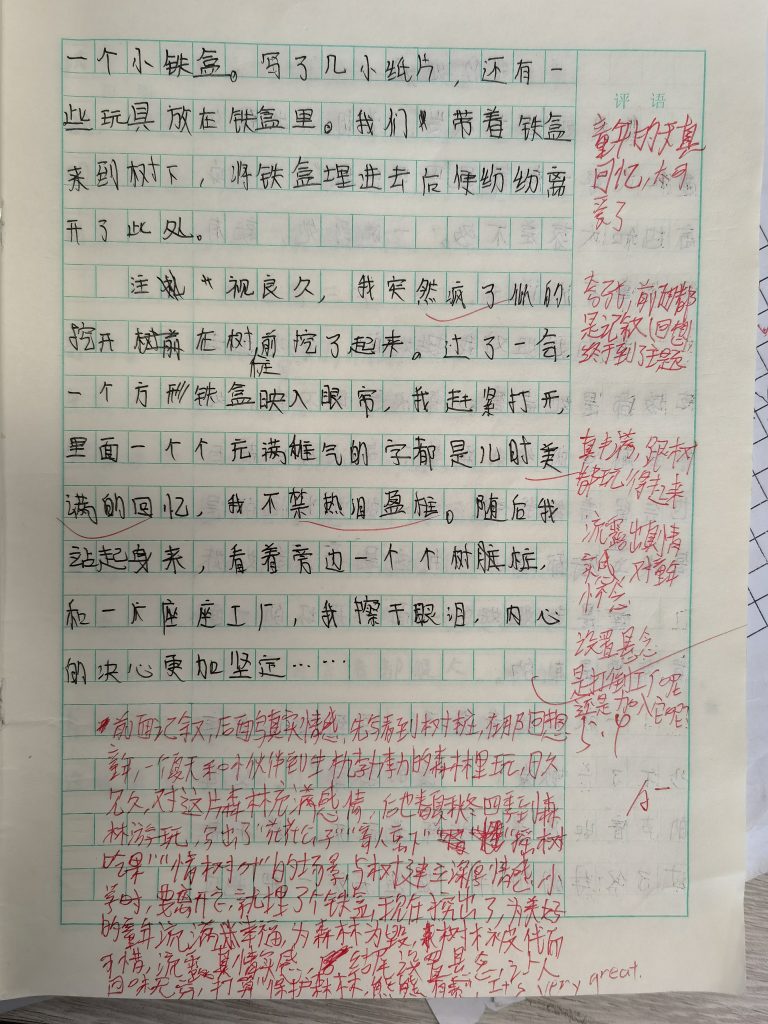 一个小铁盒。写了几小纸片，还有一
些玩具放在铁盒里。我们带着铁盒
来到树下，将铁盒埋进去后便纷纷离
开了此处。
注视良久，我突然疯了似的
挖开树前在树桩前挖了起来。过了一会，
一个方形铁盒映入眼帘，我赶紧打开
里面一个个充满稚气的字都是儿时美
满的回忆，我不禁热泪盈眶。随后我
站起身来，看着旁边一个个树桩，
和一座座工厂，我擦干眼泪，内心
的决心更加坚定……
评语
童年的天真
回忆，太可
爱了
前面都
是记叙(回想)
终于到了主题
跟树
都玩得起来
流露出真情
实感，对童年
怀念
设置悬念
是打倒工厂呢
还是加入它呢?
前面记叙，后面写真实情感，先写看到树桩，在那回想
童年，一个夏天和小伙伴到生机勃勃的森林里玩，日久
久久，对这片森林充满感情，后也春夏秋冬四季到森
林游玩，写出了"花花公子""摇树
吃果""的场景，与树建立深厚情感，小
学时，要离开它，就埋了个铁盒，现在挖出了，为美好
的童年流满幸福，为森林为毁，树木被伐而
可惜，流露真情实感，结尾设置悬念，让人
回味无穷，打算"保护森林，熊熊有责"，It's very great.